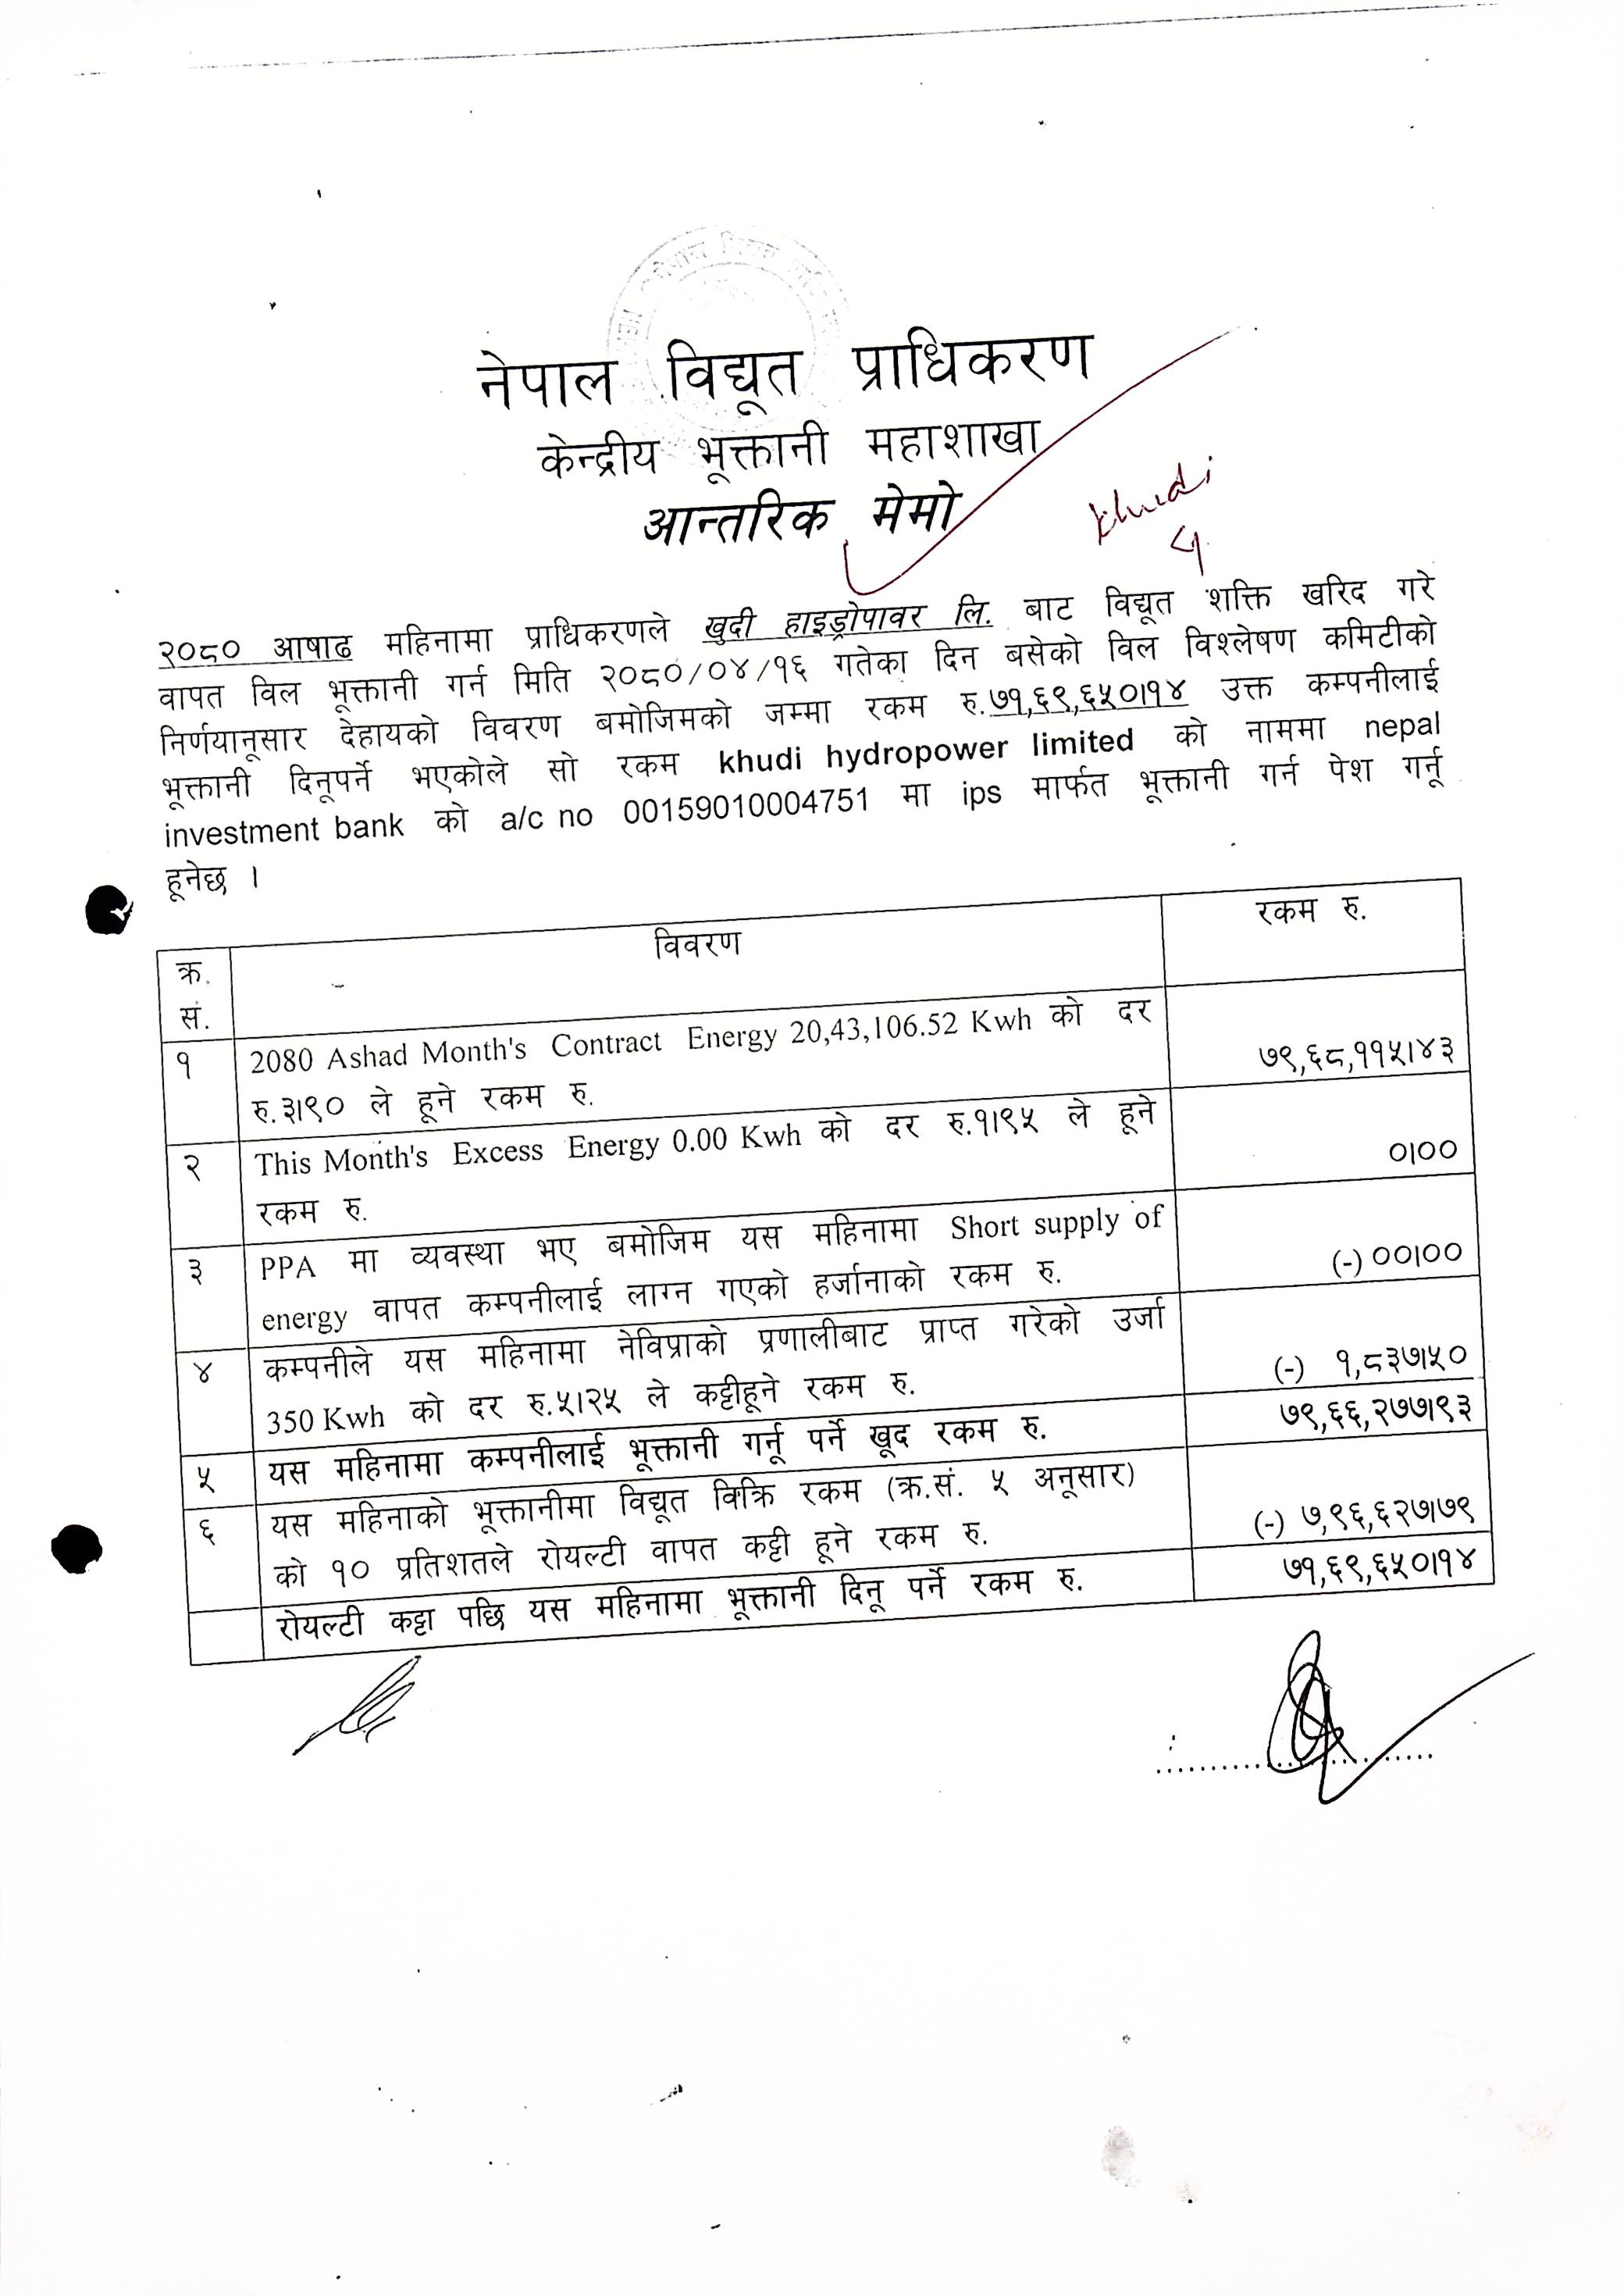 नेपाल विद्यूत प्राधिकरण
केन्द्रीय भूक्तानी महाशाखा
आन्तरिक मेमो
khudi
२०८० आषाढ महिनामा प्राधिकरणले खुदी हाइड्रोपावर लि. बाट विद्यूत शक्ति खरिद गरे
वापत विल भूक्तानी गर्न मिति २०८०/०४/१६ गतेका दिन बसेको विल विश्लेषण कमिटीको
निर्णयानूसार देहायको विवरण बमोजिमको जम्मा रकम रु.७१,६९,६५०।१४ उक्त कम्पनीलाई
भूक्तानी दिनूपर्ने भएकोले सो रकम khudi hydropower limited को नाममा nepal
investment bank को a/c no 00159010004751 मा ips मार्फत भूक्तानी गर्न पेश गर्नू
हूनेछ ।
क्र. सं. विवरण रकम रु.
१ 2080 Ashad Month's Contract Energy 20,43,106.52 Kwh को दर
रु.३।९० ले हूने रकम रु. ७९,६८,११५।४३
२ This Month's Excess Energy 0.00 Kwh को दर रु.१।९५ ले हूने
रकम रु. ०।००
३ PPA मा व्यवस्था भए बमोजिम यस महिनामा Short supply of
energy वापत कम्पनीलाई लाग्न गएको हर्जानाको रकम रु. (-) ००।००
४ कम्पनीले यस महिनामा नेविप्राको प्रणालीबाट प्राप्त गरेको उर्जा
350 Kwh को दर रु.५।२५ ले कट्टीहूने रकम रु. (-) १,८३७।५०
५ यस महिनामा कम्पनीलाई भूक्तानी गर्नू पर्ने खूद रकम रु. ७९,६६,२७७।९३
६ यस महिनाको भूक्तानीमा विद्यूत विक्रि रकम (क्र.सं. ५ अनूसार)
को १० प्रतिशतले रोयल्टी वापत कट्टी हूने रकम रु. (-) ७,९६,६२७।७९
रोयल्टी कट्टा पछि यस महिनामा भूक्तानी दिनू पर्ने रकम रु. ७१,६९,६५०।१४